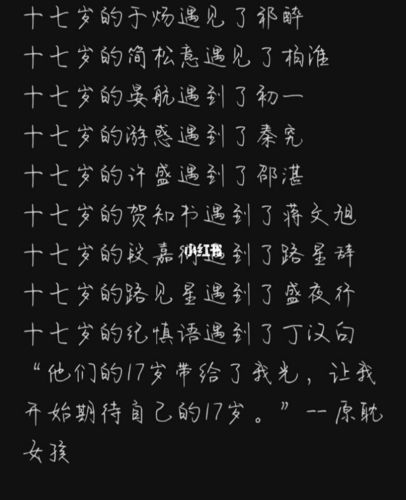 十七岁的于炀遇见了祁醉
十七岁的简松意遇见了柏淮
十七岁的晏航遇到了初一
十七岁的游惑遇到了秦究
十七岁的许盛遇到了邵湛
十七岁的贺知书遇到了蒋文旭
十七岁的段嘉衍遇到了路星辞
小红书
十七岁的路见星遇到了盛夜行
十七岁的纪慎语遇到了丁汉白
“他们的17岁带给了我光，让我
开始期待自己的17岁。”--原耽
女孩